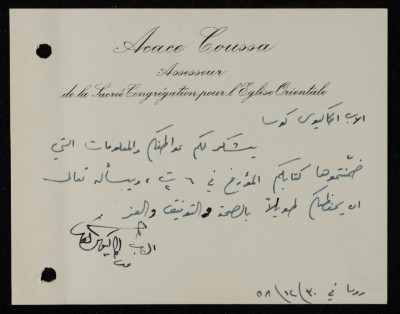 Acace Coussa
Assesseur
de la Sacrée Congrégation pour l'Eglise Orientale
الاب اكاكيوس كوسا
يشكر لكم عواطفكم والمعلومات التي
ضمّنتموها كتابكم المؤرخ في ٦ ت٢ ، ويسأله تعالى
ان يحفظكم طويلاً بالصحة والتوفيق والعز
الاب اكاكيوس كوسا
روما في ٣٠/١٢/٥٨